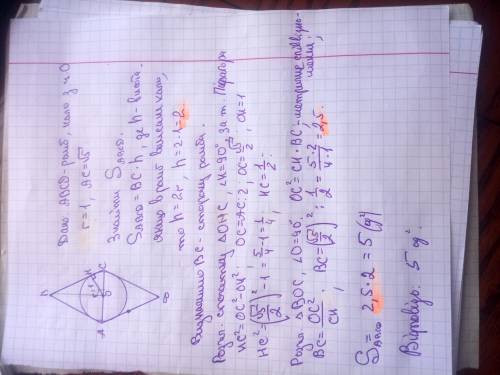 Дано ABCD-ромб, коло з ц. O
r=1, AC=√5
Знайти S ABCD.
S ABCD = BC·h, де h-висота.
якщо в ромб вписане коло,
то h=2r, h=2·1=2.
Визначимо BC - сторону ромба.
Розгл. спочатку △OHC, ∠H=90°. За т. Піфагора
HC²=OC²-OH². OC=AC:2, OC=√5/2, OH=1
HC²=(√5/2)²-1=5/4-1=1/4, HC=1/2.
Розгл △BOC, ∠O=90°. OC²=CH·BC-метричне співвідно-
шення,
BC=OC²/CH, BC=(√5/2)² : 1/2 = 5·2/4·1 = 2,5.
S ABCD = 2,5·2=5 (од²)
Відповідь: 5 од².
A
B
C
D
O
H